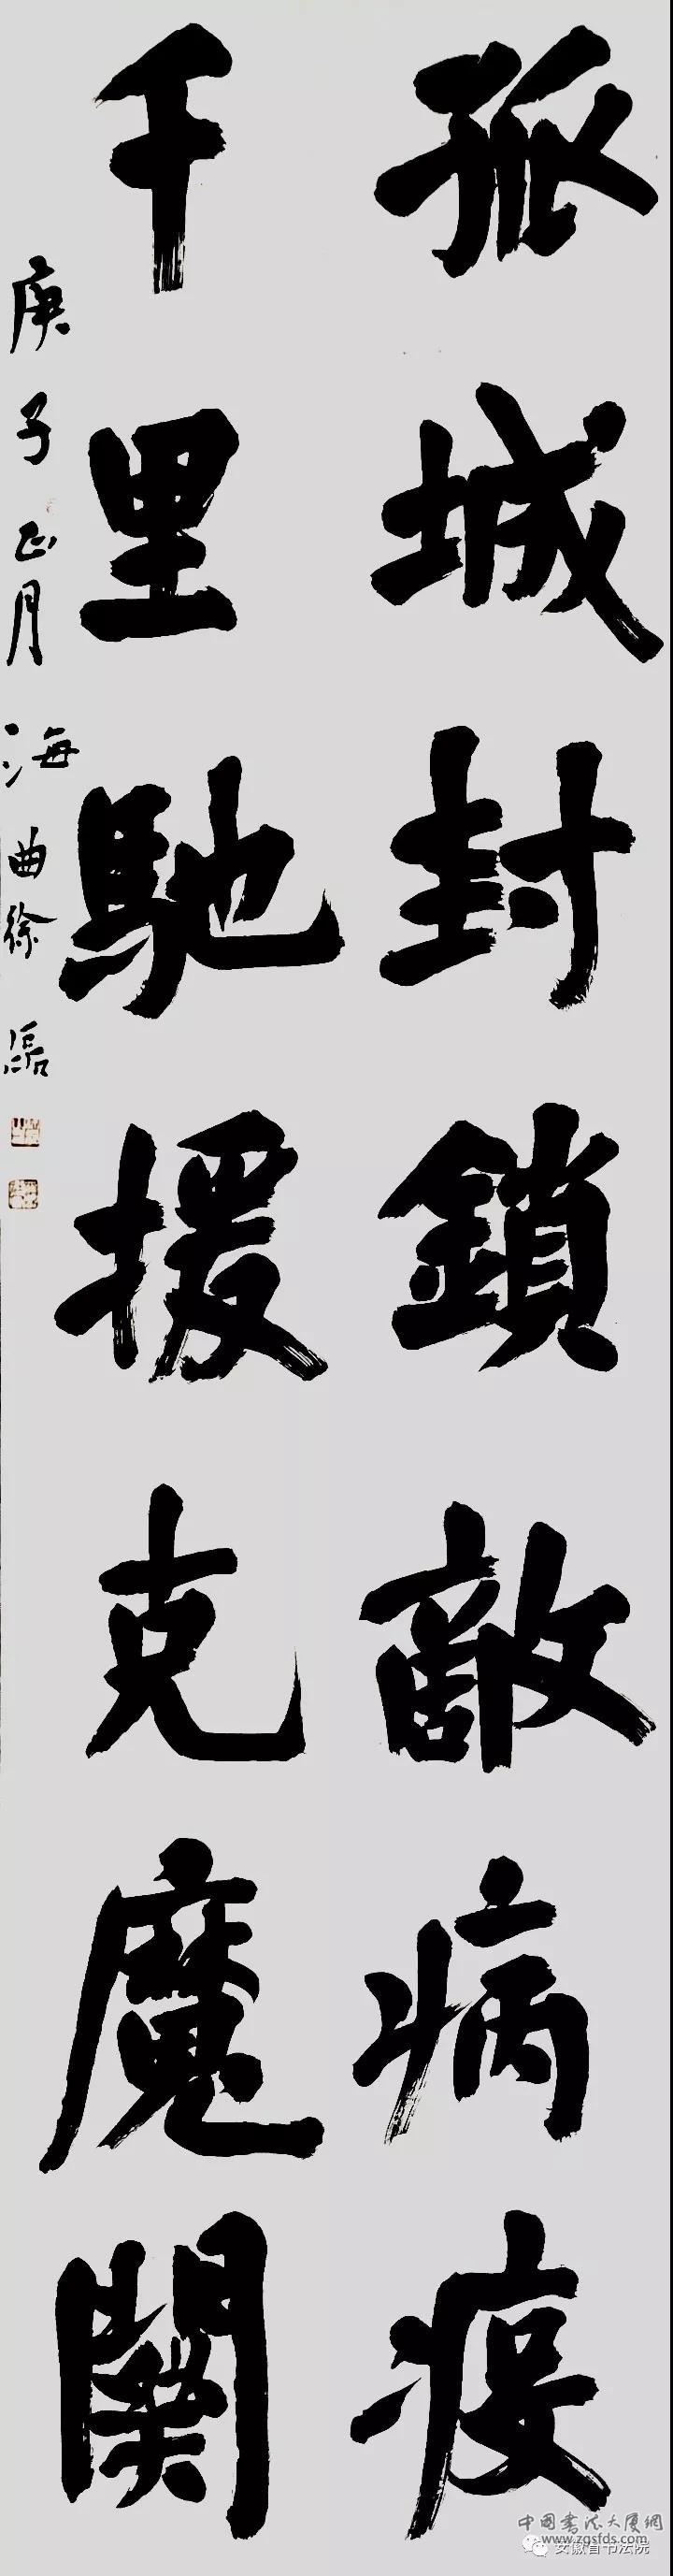 孤城封鎖敵病疫
千里馳援克魔關
庚子正月海曲徐磊
中国书法大厦网
www.zgsfds.com
安徽省书法院